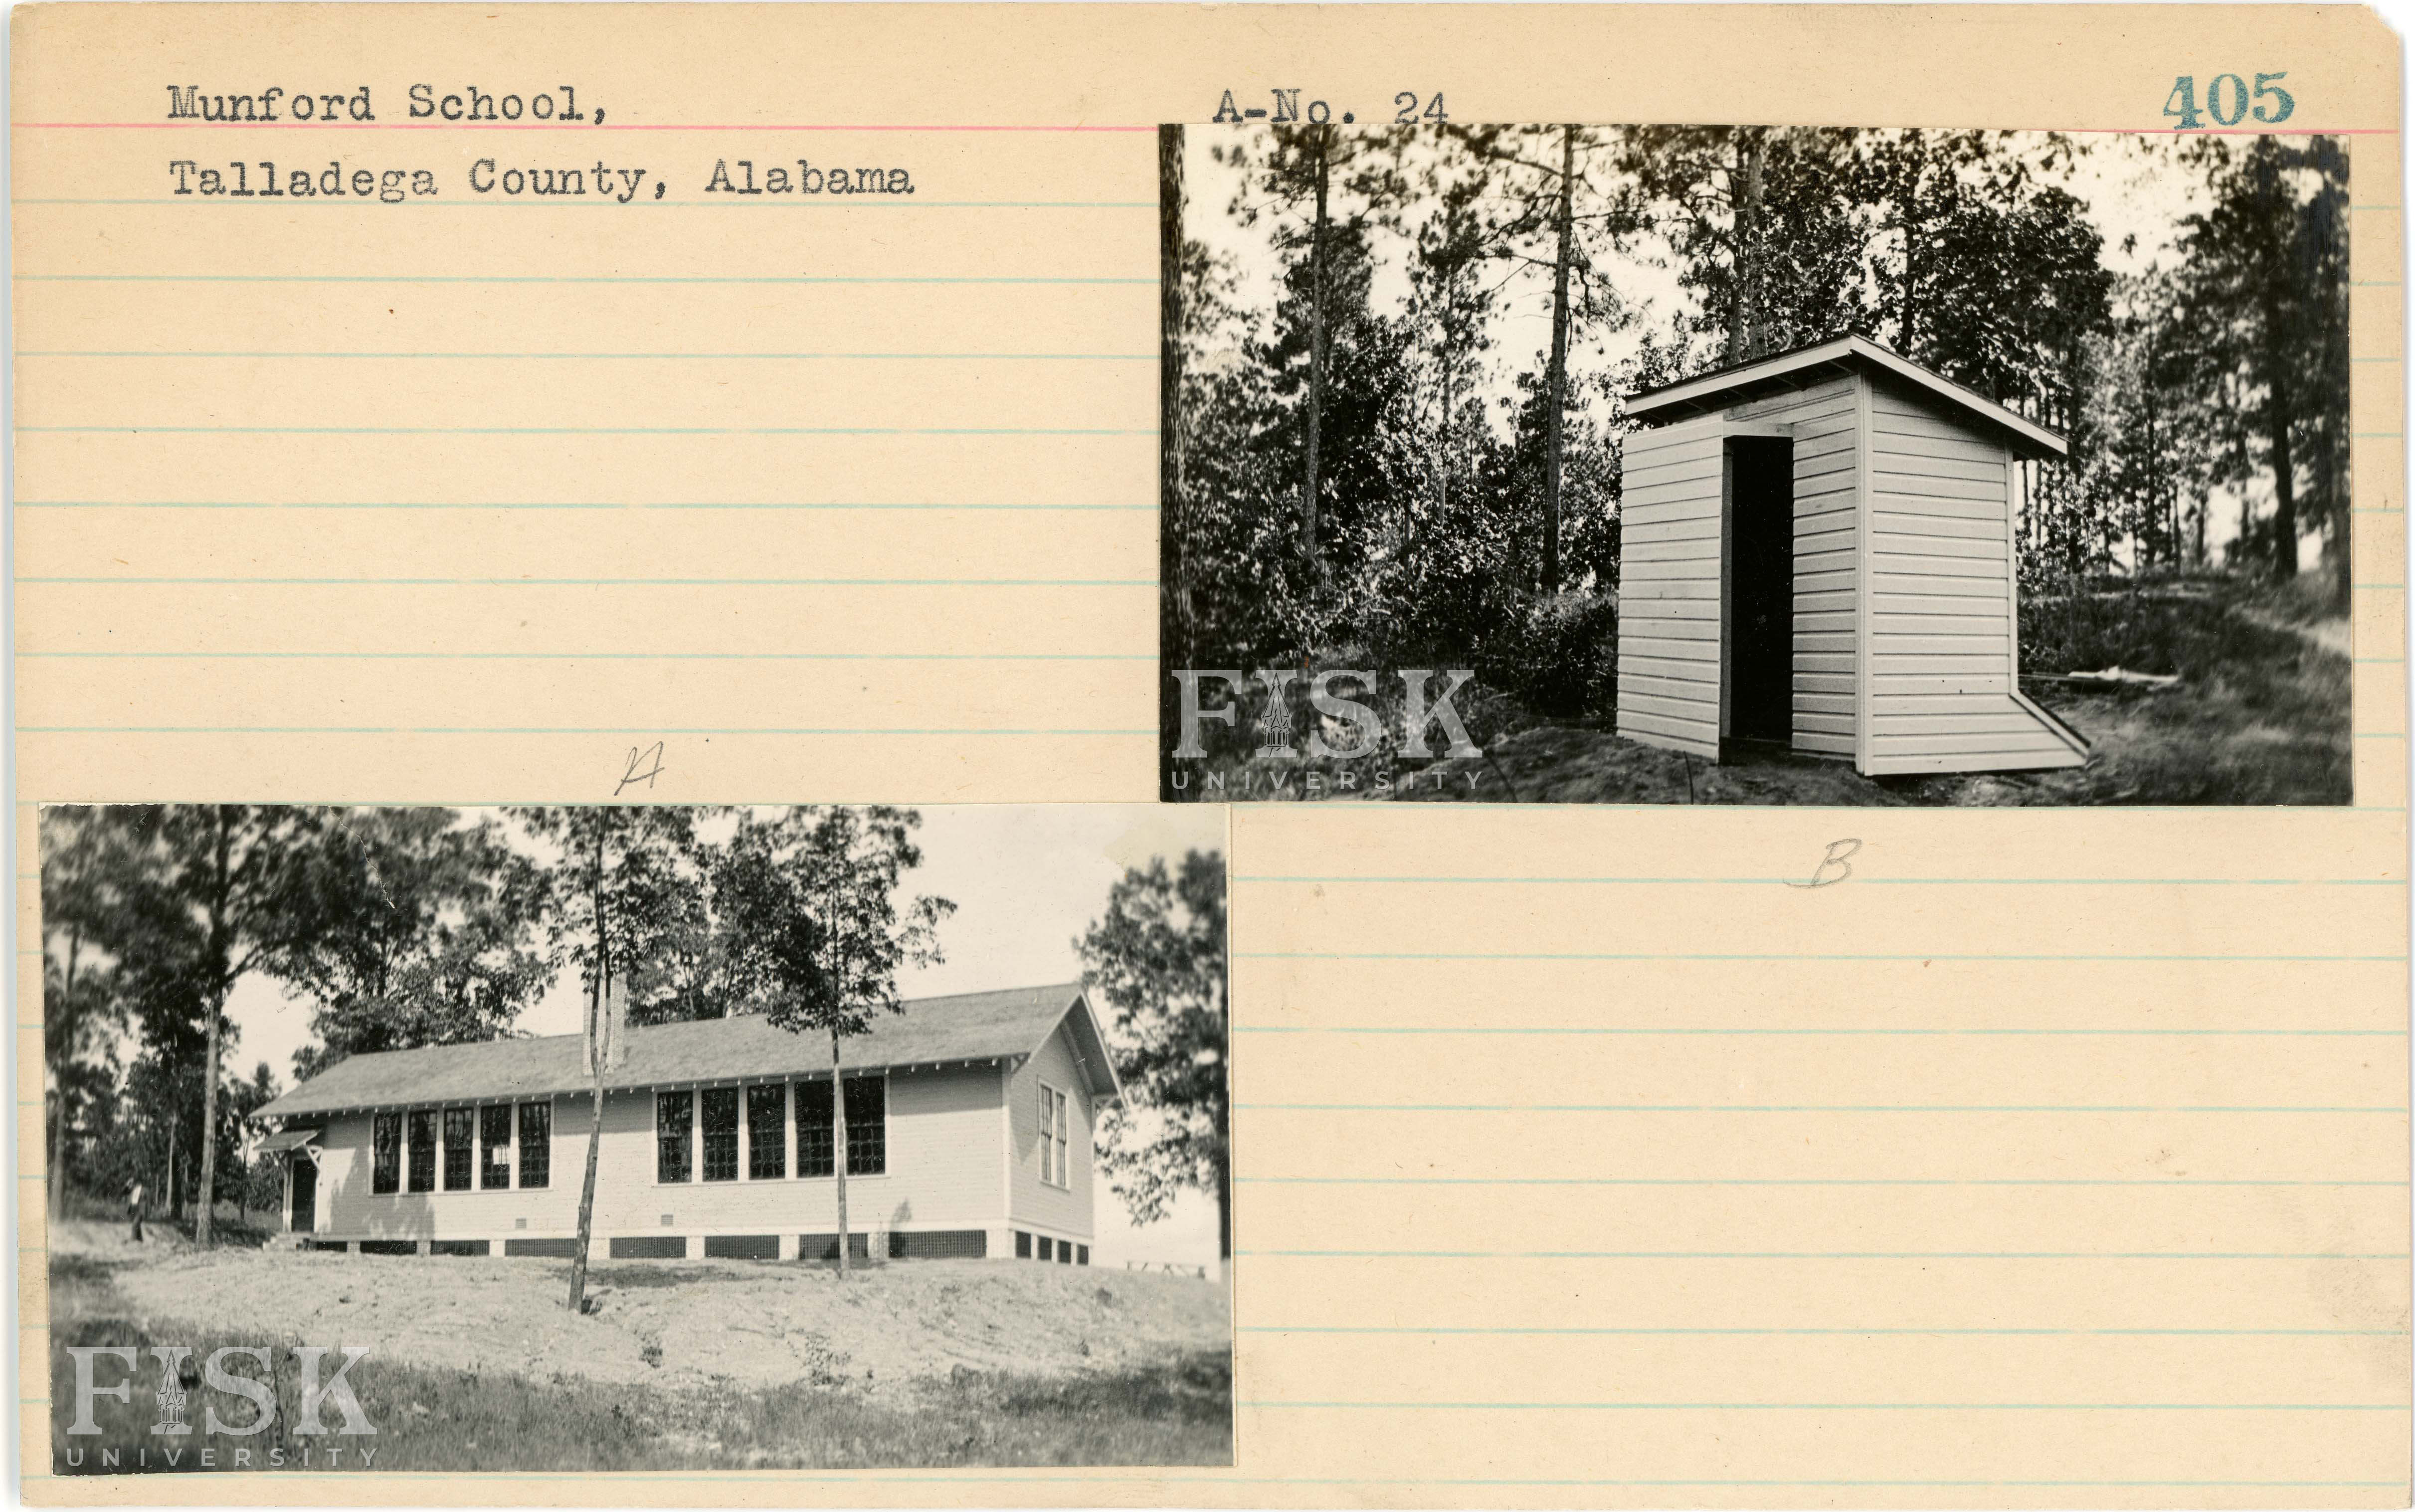 Munford School, A-No. 24 405
Talladega County, Alabama
A
B
FISK
UNIVERSITY
FISK
UNIVERSITY